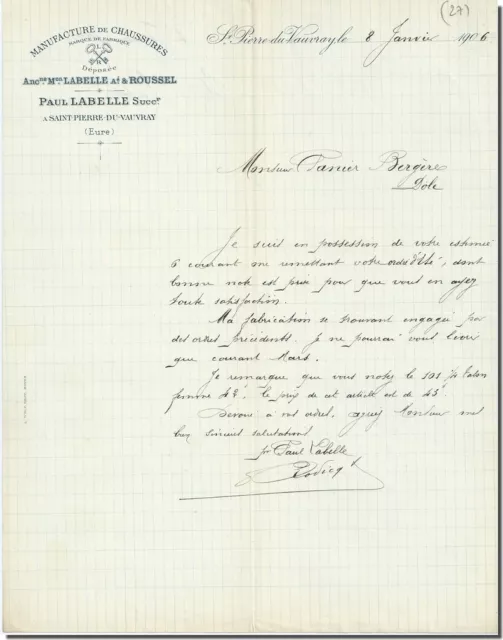 (27)
MANUFACTURE DE CHAUSSURES
MARQUE DE FABRIQUE
L
R
Déposée
ANCNE MON LABELLE AÎ & ROUSSEL
PAUL LABELLE SUCCR
A SAINT-PIERRE-DU-VAUVRAY
(Eure)
St Pierre du Vauvray, le 8 Janvier 1906
Monsieur Panier Bergère
Dôle
Je suis en possession de votre estimée
6 courant me remettant votre ordre d'Eté, dont
bonne note est prise pour que vous en ayez
toute satisfaction.
Ma fabrication se trouvant engagée par
des ordres précédents. Je ne pourrai vous livrer
que courant Mars.
Je remarque que vous notez le 101 talon
femme 42f. le prix de cet article est de 43f
Dévoué à vos ordres, agréez Monsieur mes
bien sincères salutations
pr Paul Labelle